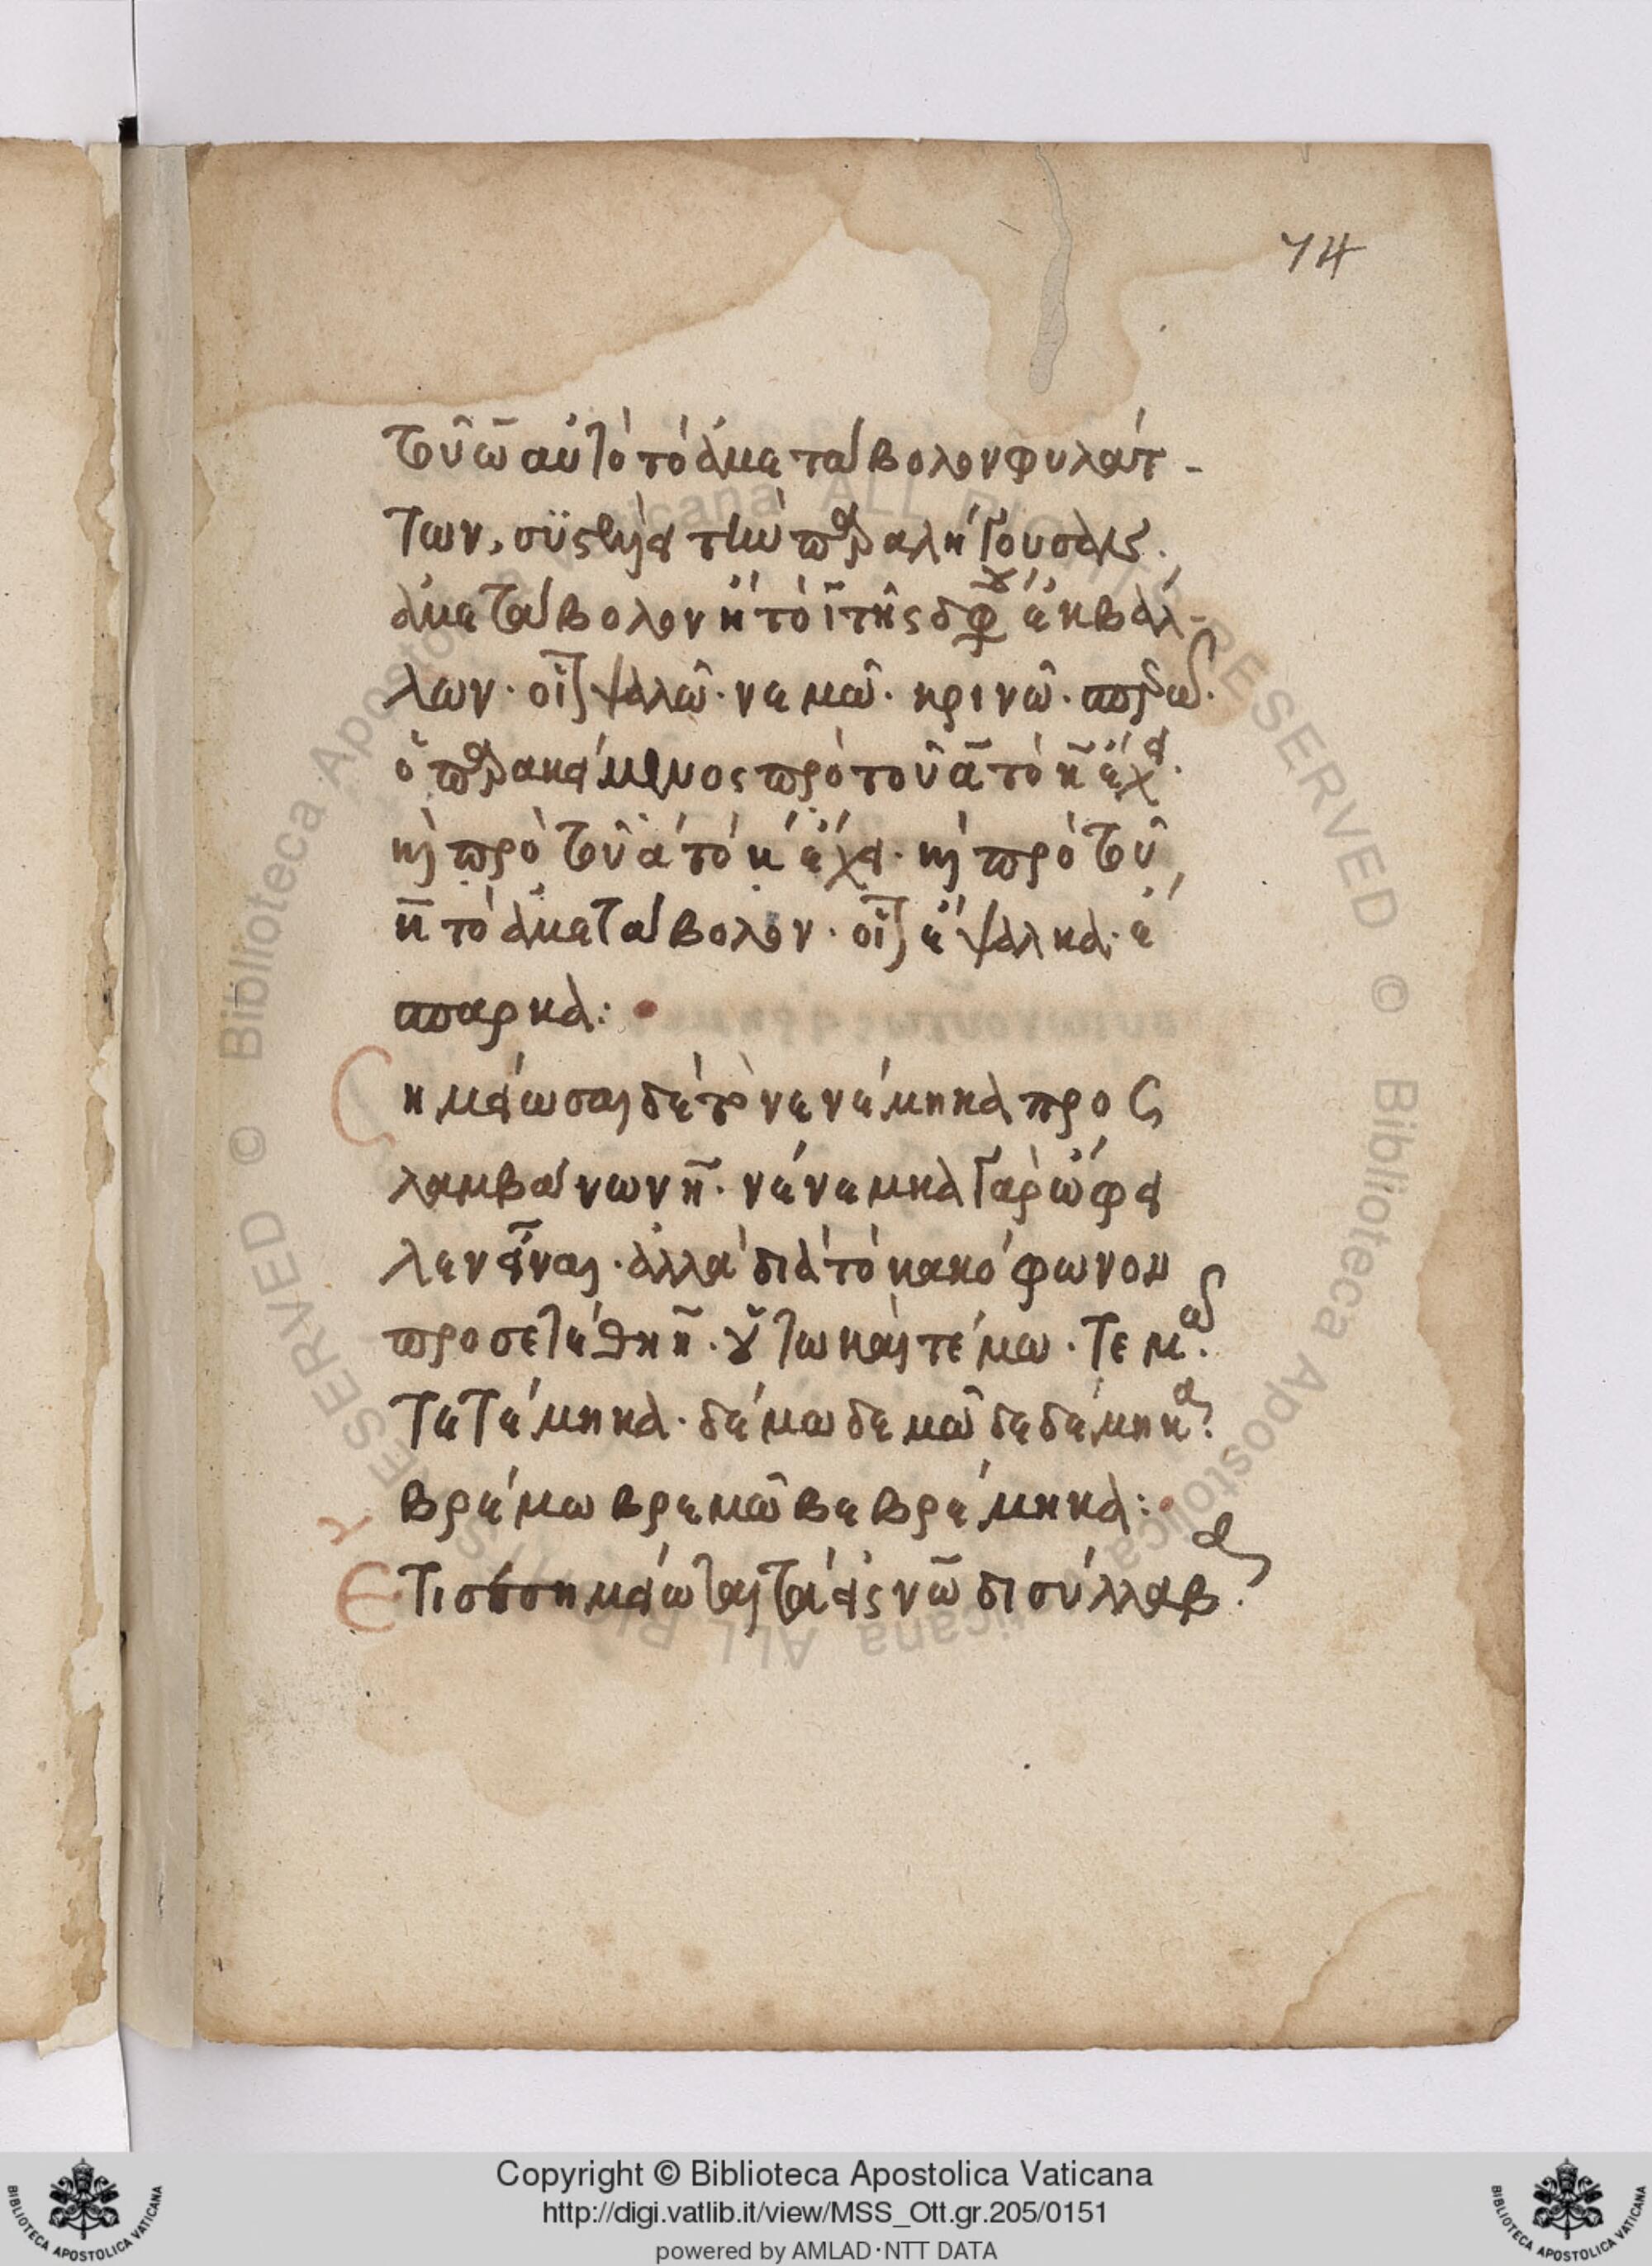 74
τοῦ ω̄ αὐτὸ τὸ ἀμετάβολον φυλάτ-
των, συστέλλει τὴν παραλήγουσαν.
ἀμετάβολον ἢ τὸ ῑ τῆς διφθόγγου ἐκβάλ-
λων. οἷον ψαλῶ. νεμῶ. κρινῶ. σπερῶ.
ὁ παρακείμενος πρὸ τοῦ ᾱ τὸ κ̄ ἔχει.
καὶ πρὸ τοῦ ά τὸ κ ἔχει. καὶ πρὸ τοῦ
κ̄ τὸ ἀμετάβολον. οἷον ἔψαλκα. ἔ
σπαρκα:
Σημείωσαι δὲ τὸ νενέμηκα προς
λαμβάνων η̄. νένεμκα γὰρ ὤφει
λεν εἶναι. ἀλλὰ διὰ τὸ κακόφωνον
προσετέθη η̄. οὕτω καὶ τέμω. τεμῶ.
τετέμηκα. δέμω δεμῶ δεδέμηκα.
βρέμω βρεμῶ βεβρέμηκα:
Ἔτι σεσημείωται τὰ εἰς νω δισύλλαβα.
Copyright © Biblioteca Apostolica Vaticana
http://digi.vatlib.it/view/MSS_Ott.gr.205/0151
powered by AMLAD·NTT DATA